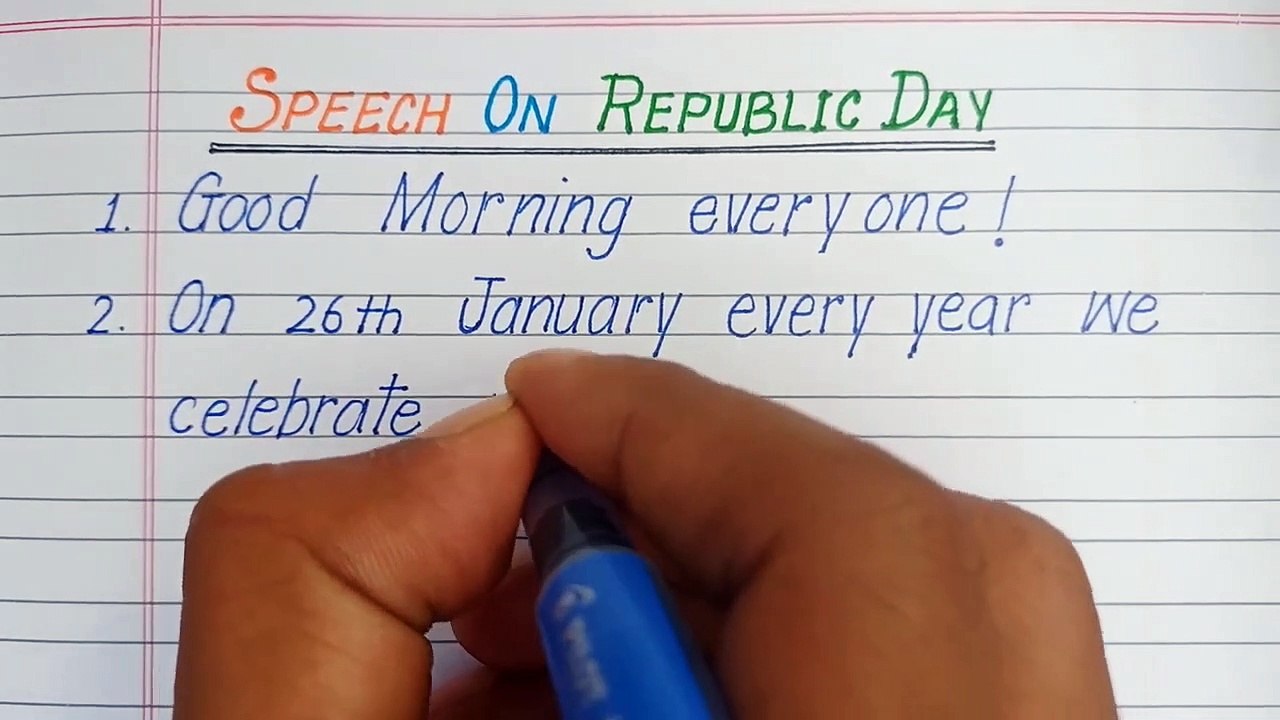 SPEECH ON REPUBLIC DAY
1. Good Morning everyone!
2. On 26th January every year we
celebrate